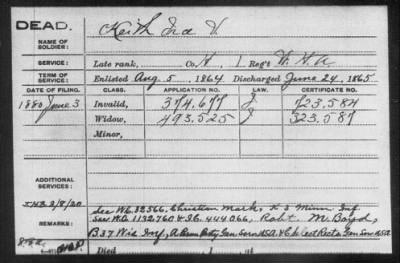 DEAD.
NAME OF SOLDIER: Keith Ira V.
SERVICE: Late rank, Co. H, 1 Reg't W. H. A
TERM OF SERVICE: Enlisted Aug. 5, 1864 Discharged June 24, 1865
DATE OF FILING. CLASS. APPLICATION NO. LAW. CERTIFICATE NO.
1880 June 3 Invalid, 374.677 J 723.584
Widow, 493.525 J 323.587
Minor,
ADDITIONAL SERVICES:
3/8/20
REMARKS: See W.C. 82566. Christian Mark, K 3 Minn Inf.
See W.O. 1132.760 & I.C. 444.066, Robt. McBoyd,
B 37 Wis Inf,
Died